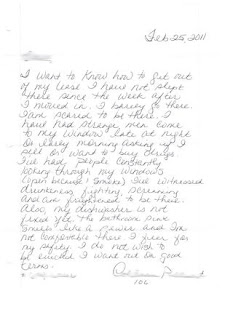 Feb 25, 2011
I want to know how to get out
of my lease. I have not slept
there since the week after
I moved in. I barely go there.
I am scared to be there. I
have had strange men come
to my window late at night
or early morning asking if I
sell or want to buy drugs.
I've had people constantly
looking through my windows
(apart because I smoke) I've witnessed
drunkeness, fighting, screaming
and am frightened to be there.
Also, my dishwasher is not
fixed yet the bathroom sink
smells like a sewer and I'm
not comfortable there I fear for
my safety. I do not wish to
be evicted I want out on good
terms.
106